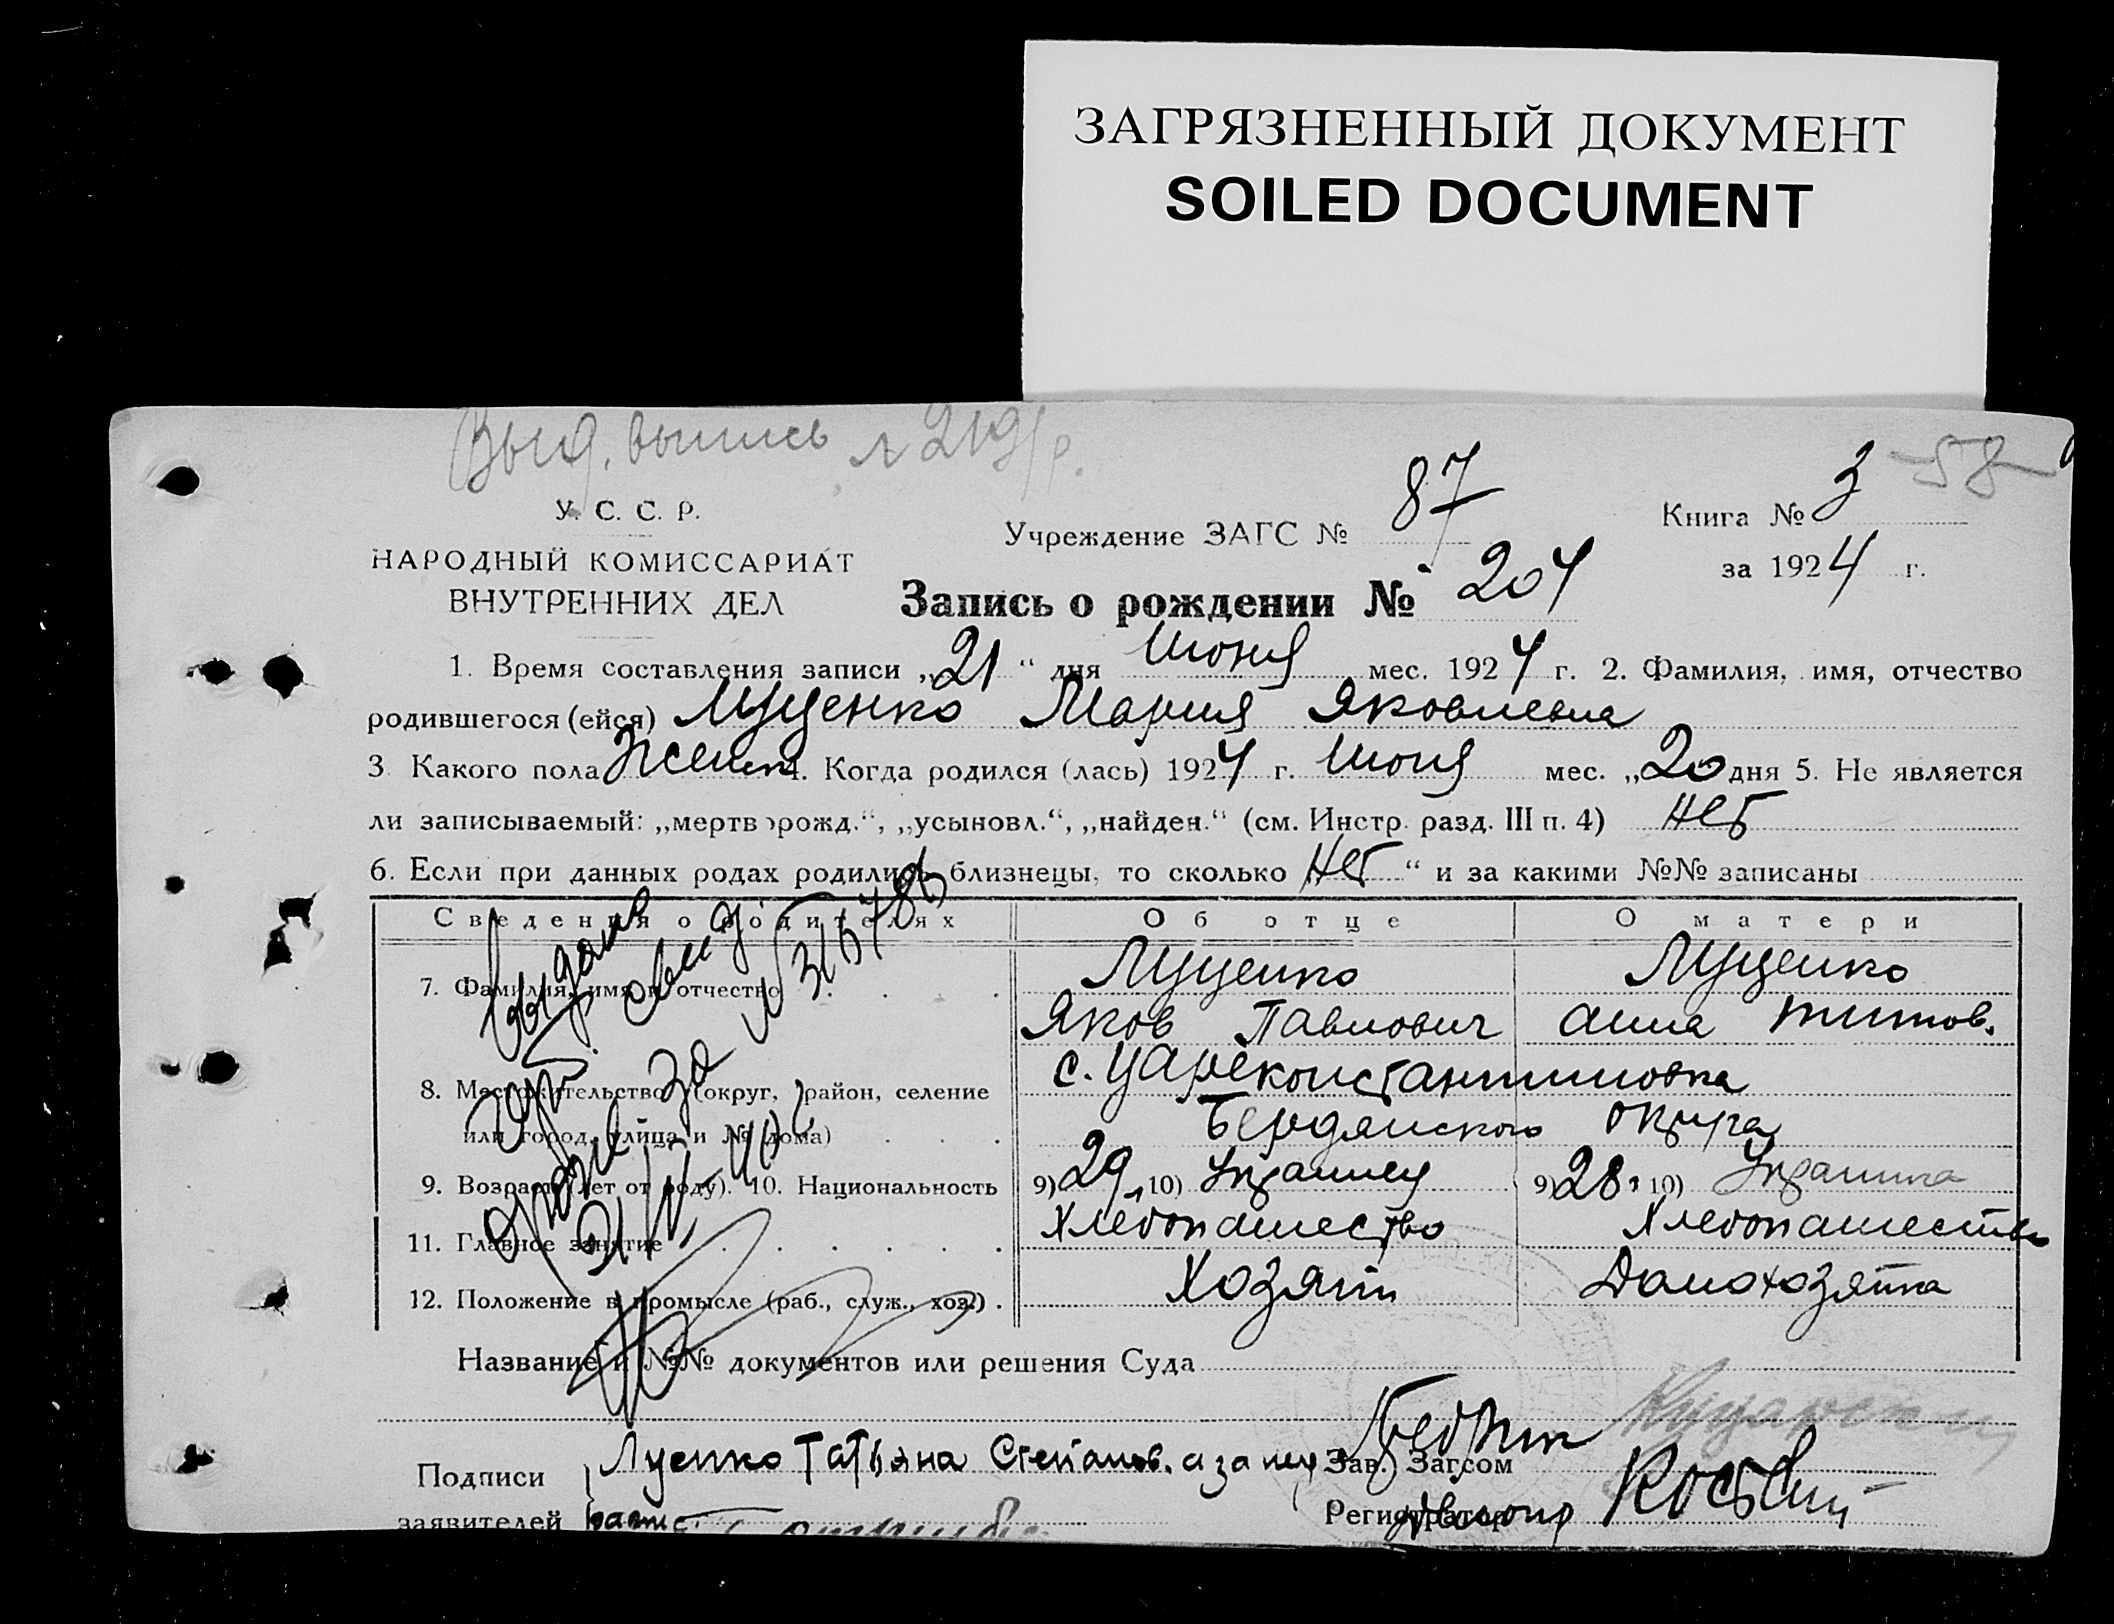 ЗАГРЯЗНЕННЫЙ ДОКУМЕНТ
SOILED DOCUMENT
Выд. выпись
58
У. С. С. Р.
НАРОДНЫЙ КОМИССАРИАТ
ВНУТРЕННИХ ДЕЛ
Учреждение ЗАГС № 87
Книга № 3
за 1924 г.
Запись о рождении № 204
1. Время составления записи „21“ дня Июня мес. 1924 г. 2. Фамилия, имя, отчество
родившегося (ейся) Луценко Мария Яковлевна
3 Какого пола Женск 4. Когда родился (лась) 1924 г. Июня мес. „20 дня 5. Не является
ли записываемый: „мертворожд.“, „усыновл.“, „найден.“ (см. Инстр. разд. III п. 4) Нет
6. Если при данных родах родились близнецы, то сколько Нет “ и за какими №№ записаны
Сведения о родителях Об отце О матери
7. Фамилия, имя и отчество Луценко Луценко
Яков Павлович Анна Титов.
8. Местожительство (округ, район, селение с. Цареконстантиновка
или город, улица и № дома) Бердянского округа
9. Возраст (лет от роду). 10. Национальность 9) 29, 10) Украинец 9) 28, 10) Украинка
11. Главное занятие Хлебопашество Хлебопашество
12. Положение в промысле (раб., служ., хоз.) Хозяин Домохозяйка
Название и №№ документов или решения Суда
выдано
за №
Подписи Луценко Татьяна Степанов. а за нея
заявителей
Зав. Загсом
Регистратор